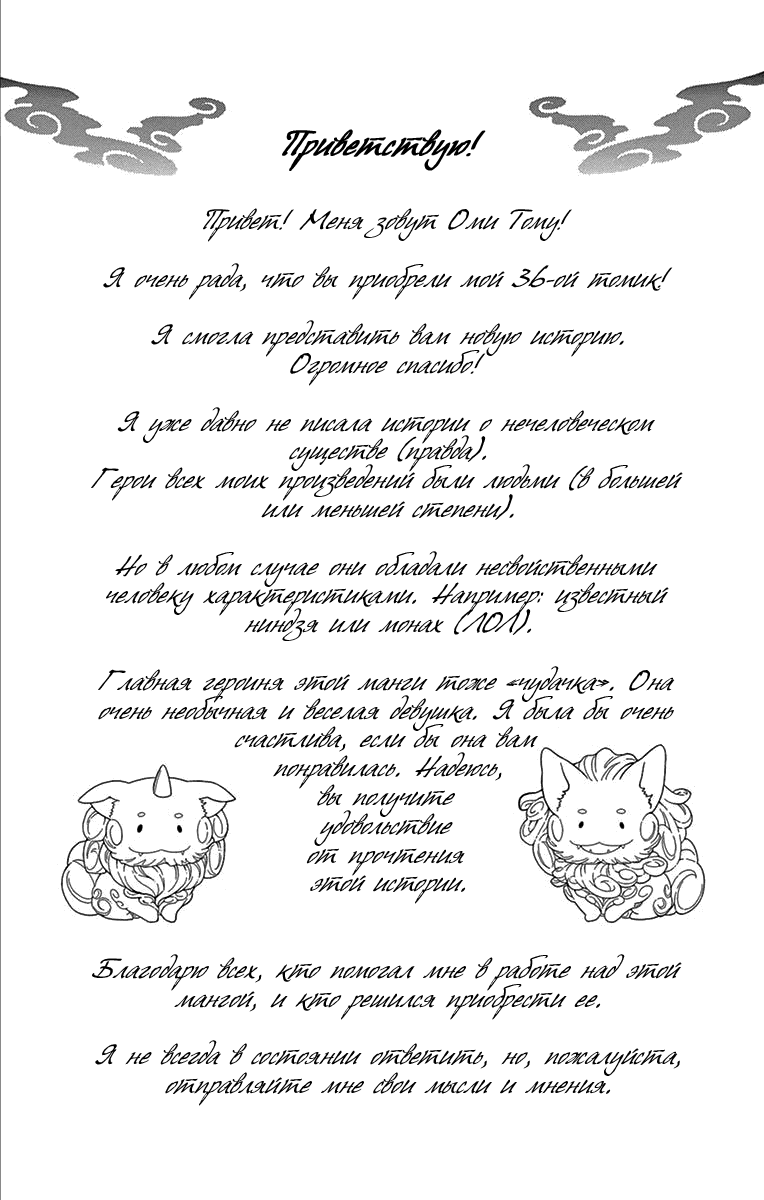 Приветствую!
Привет! Меня зовут Оми Тому!
Я очень рада, что вы приобрели мой 36-ой томик!
Я смогла представить вам новую историю.
Огромное спасибо!
Я уже давно не писала истории о нечеловеческом
существе (правда).
Герои всех моих произведений были людьми (в большей
или меньшей степени).
Но в любом случае они обладали несвойственными
человеку характеристиками. Например: известный
ниндзя или монах (ЛОЛ).
Главная героиня этой манги тоже «чудачка». Она
очень необычная и веселая девушка. Я была бы очень
счастлива, если бы она вам
понравилась. Надеюсь,
вы получите
удовольствие
от прочтения
этой истории.
Благодарю всех, кто помогал мне в работе над этой
мангой, и кто решился приобрести ее.
Я не всегда в состоянии ответить, но, пожалуйста,
отправляйте мне свои мысли и мнения.